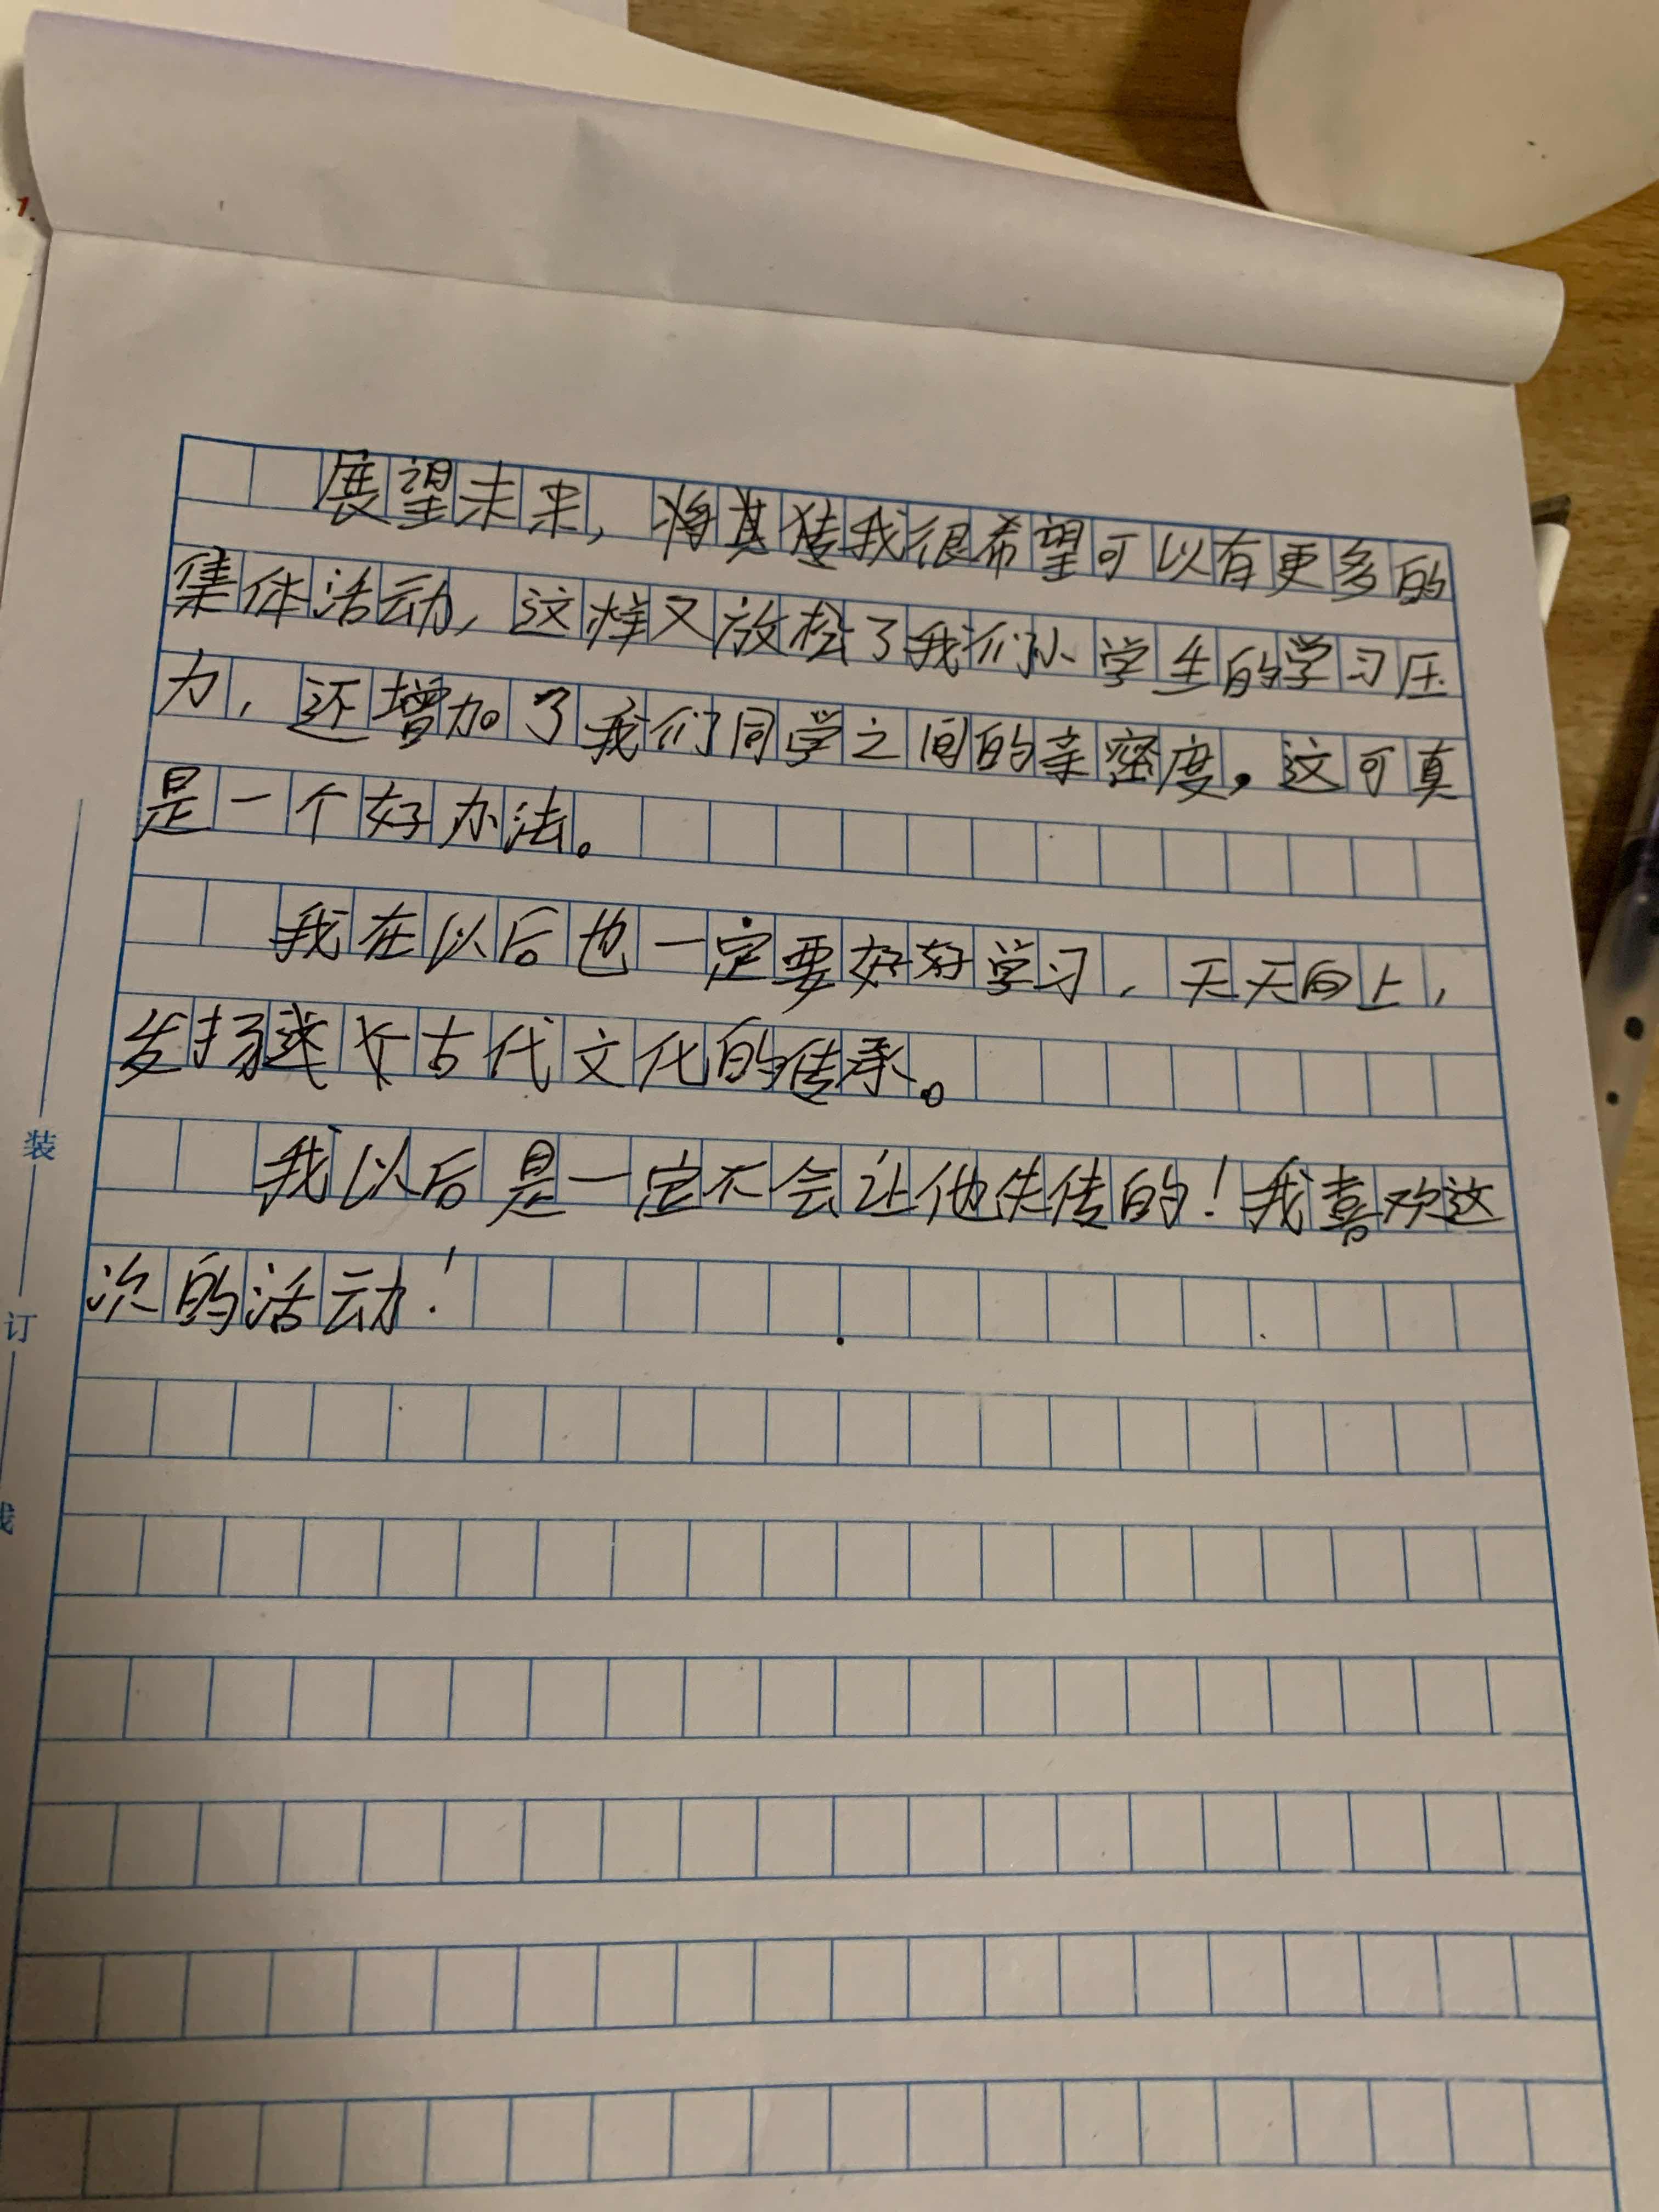 1.
展望未来，将其我很希望可以有更多的
集体活动，这样又放松了我们小学生的学习压
力，还增加了我们同学之间的亲密度，这可真
是一个好办法。
我在以后也一定要好好学习，天天向上，
发扬这个古代文化的传承。
我以后是一定不会让他失传的！我喜欢这
次的活动！
装
订
线